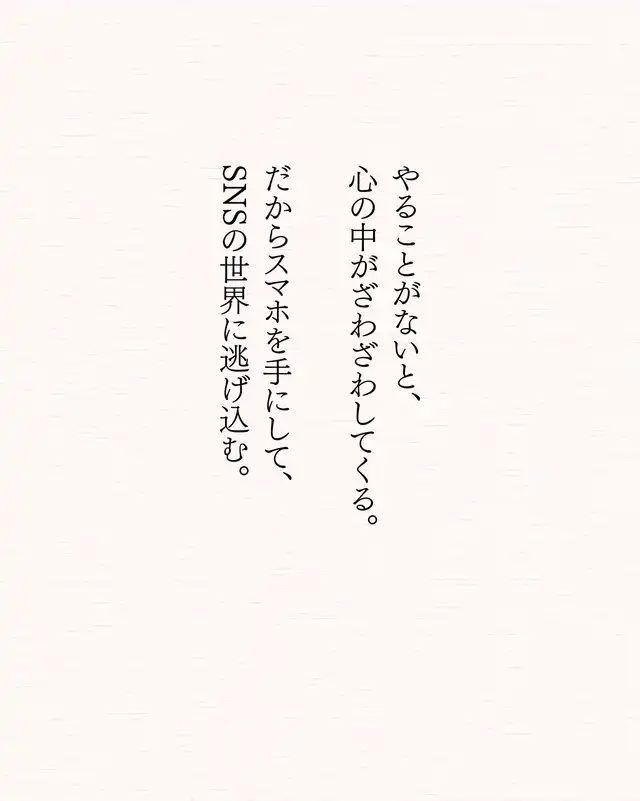 やることがないと、
心の中がざわざわしてくる。
だからスマホを手にして、
SNSの世界に逃げ込む。